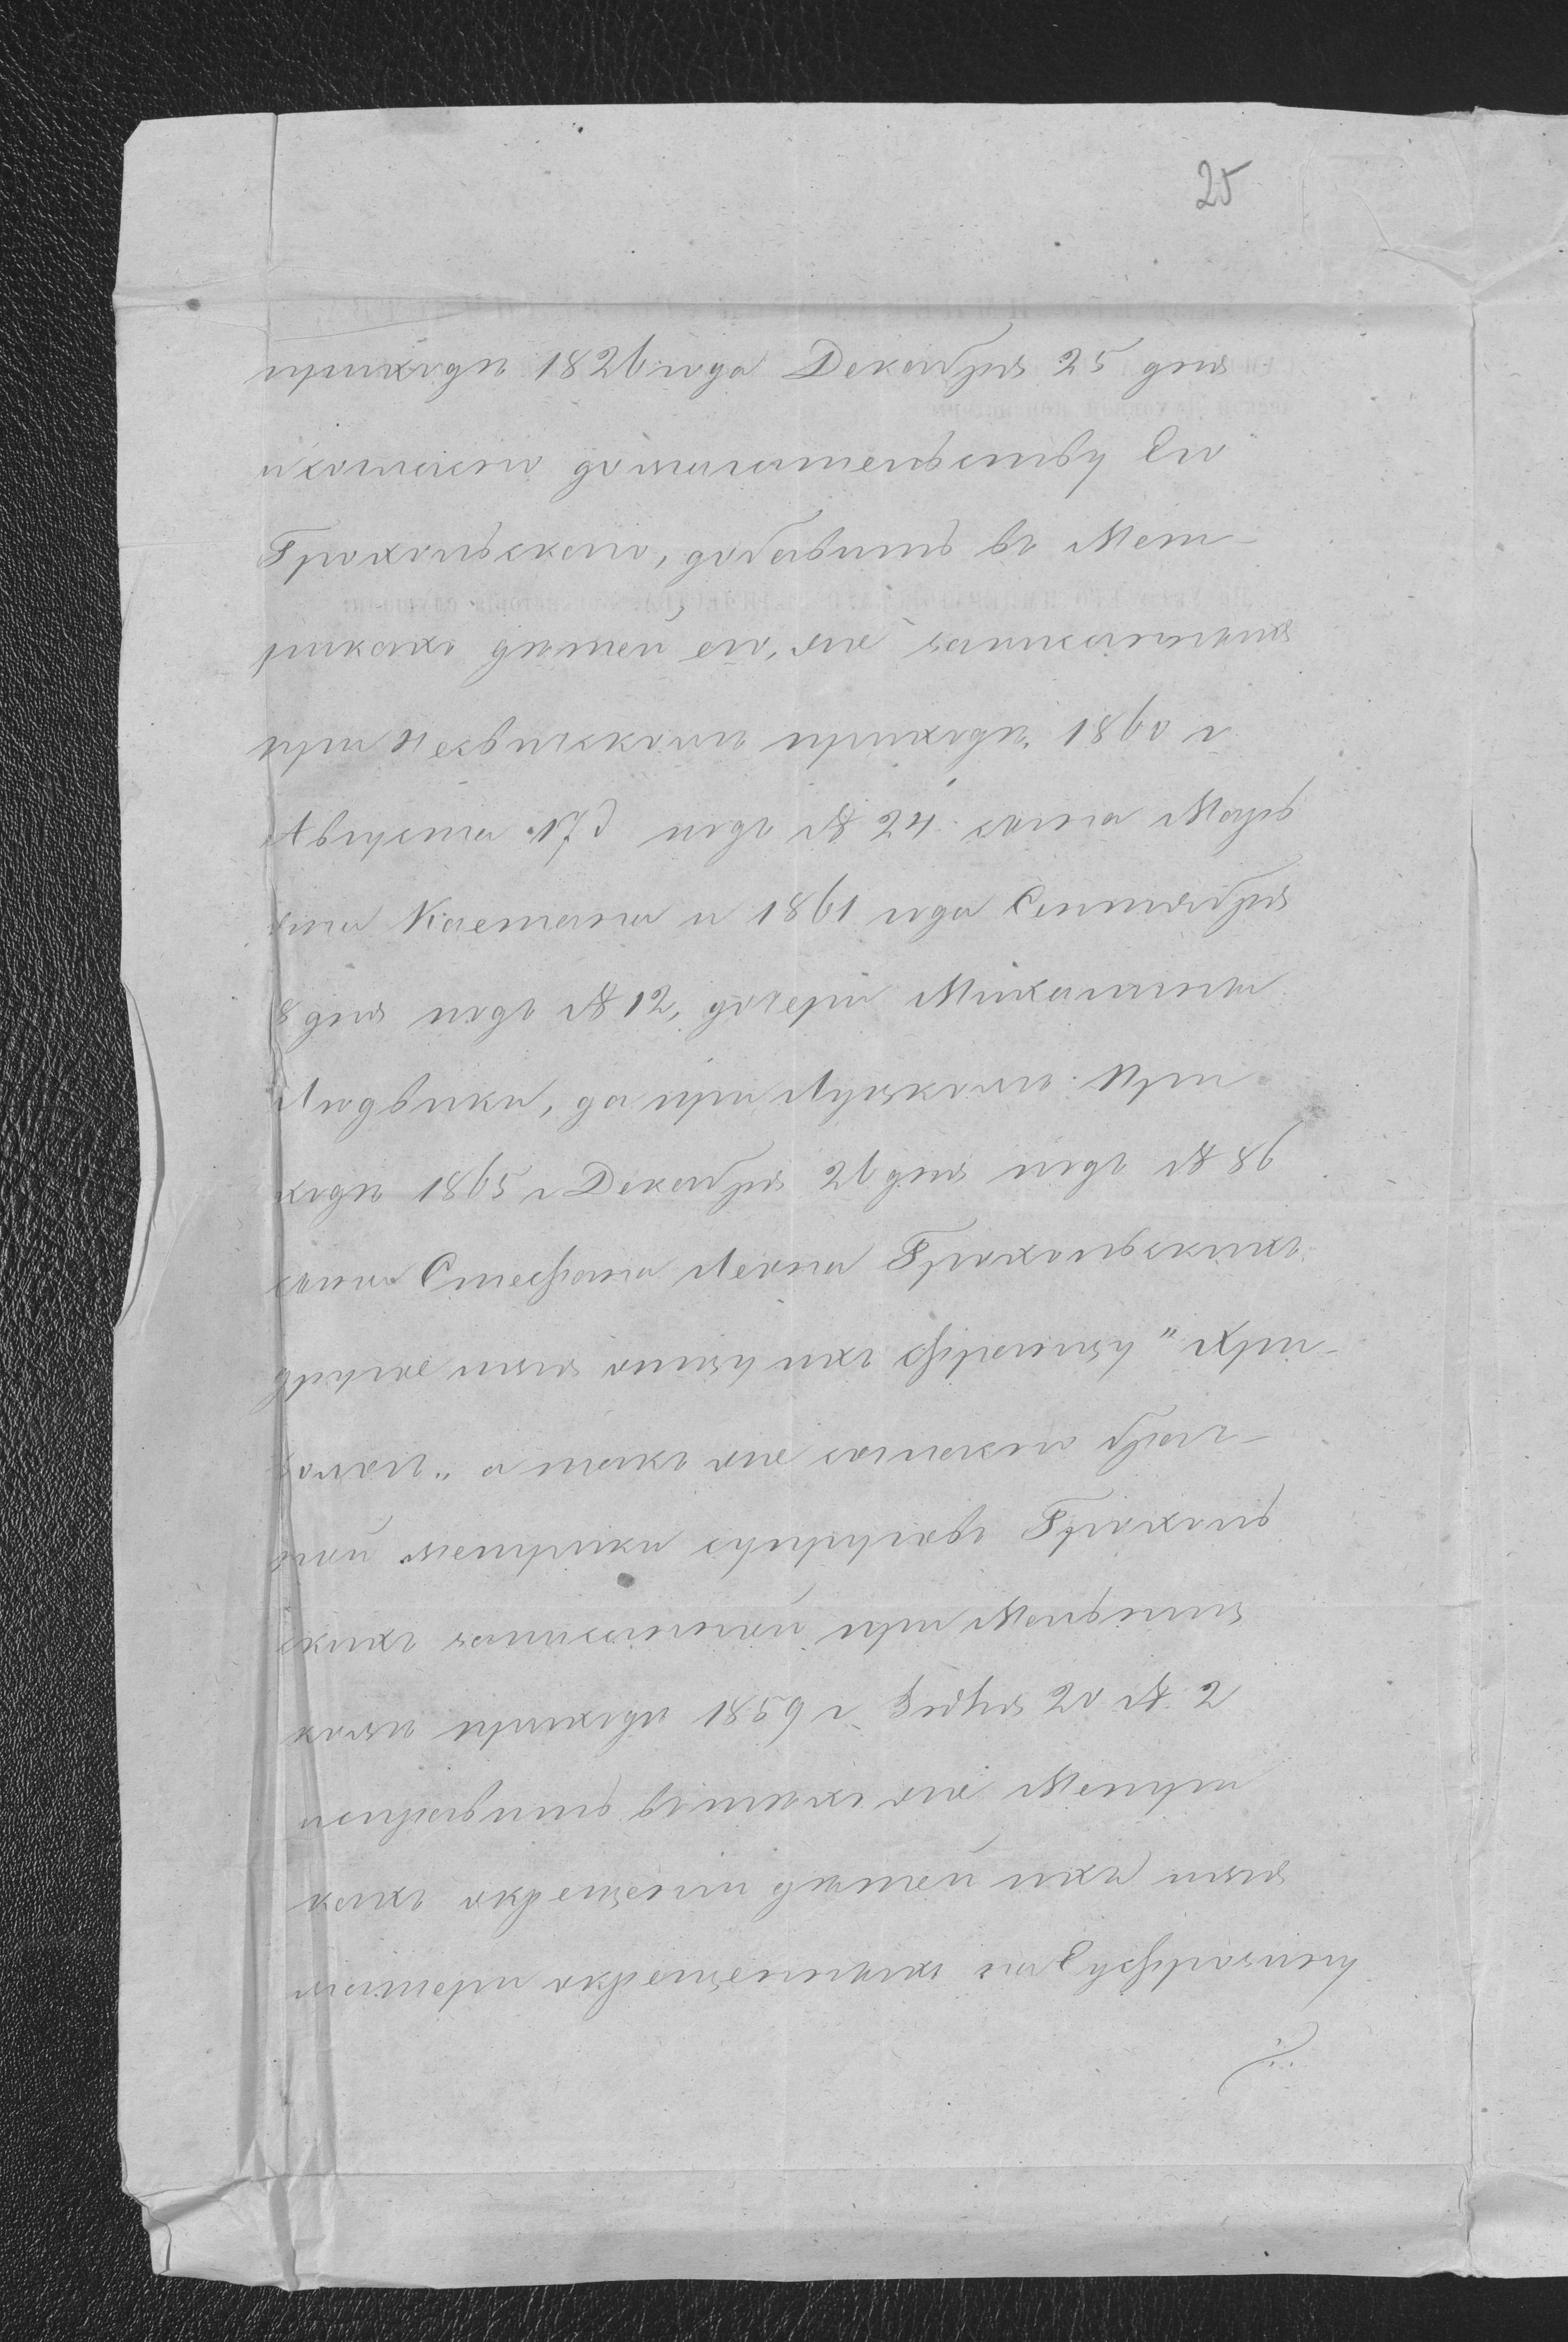 25
приходѣ 1826 года Декабря 25 дня
и согласно домагательству Его
Грохольскаго, добавить въ Мет-
рикахъ дѣтей его, же записанныхъ
при Несвичскомъ приходѣ, 1860 г
Августа 17 д подъ № 24 сына Марь
яна Каетана и 1861 года Сентября
8 дня подъ № 12, дочери Михалины
Людвики, да при Луцкомъ При
ходѣ 1865 г Декабря 26 дня подъ № 86
сына Стефана Леона Грохольскихъ
другое имя отцу ихъ Францу "Хри-
" а также согласно брач-
ной метрики супруговъ Грохоль
скихъ записанной при
комъ приходѣ 1859 г 20 № 2
исправить въ тѣхъ же Метри
кахъ о крещеніи дѣтей ихъ имя
матери окрещенныхъ на Еуфрозину